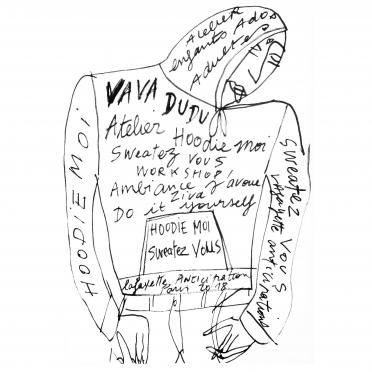 Atelier
enfants Ados
Adultes
VAVA DUDU
Atelier Hoodie moi
Sweatez vous
WORKSHOP!
Ambiance j'avoue
Ziva
Do it yourself
HOODIE MOI
Sweatez Vous
Lafayette ANTICIPATION
Paris 2018
HOODIE MOI
Sweatez Vous
Lafayette anticipations